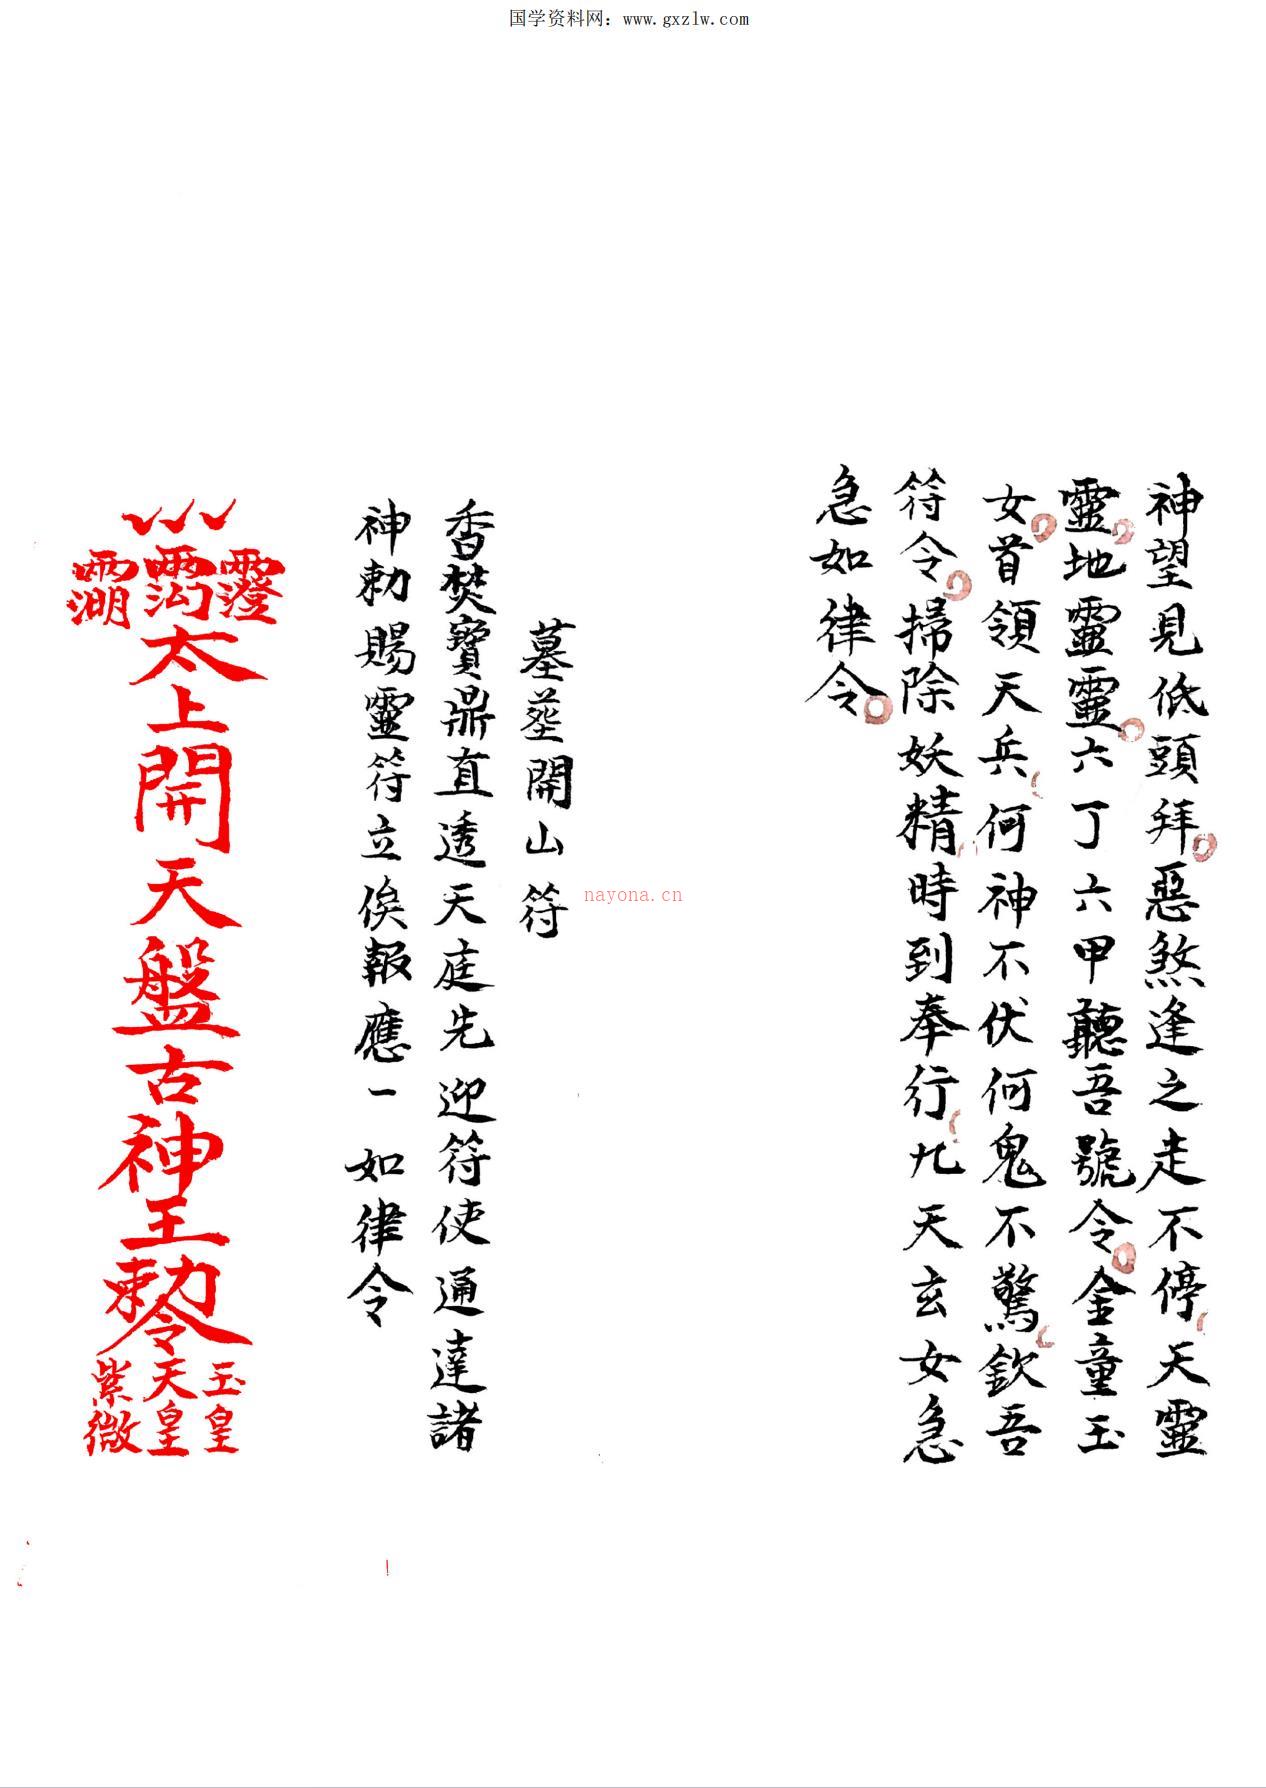 国学资料网：www.gxzlw.com
神望見低頭拜惡煞逢之走不停天靈
靈地靈靈六丁六甲聽吾號令金童玉
女首領天兵何神不伏何鬼不驚欽吾
符令掃除妖精時到奉行九天玄女急
急如律令
墓塟開山符
香焚寶鼎直透天庭先迎符使通達諸
神勅賜靈符立俟報應一如律令
nayona.cn
太上開天盤古神王勅令
玉皇
天皇
紫微